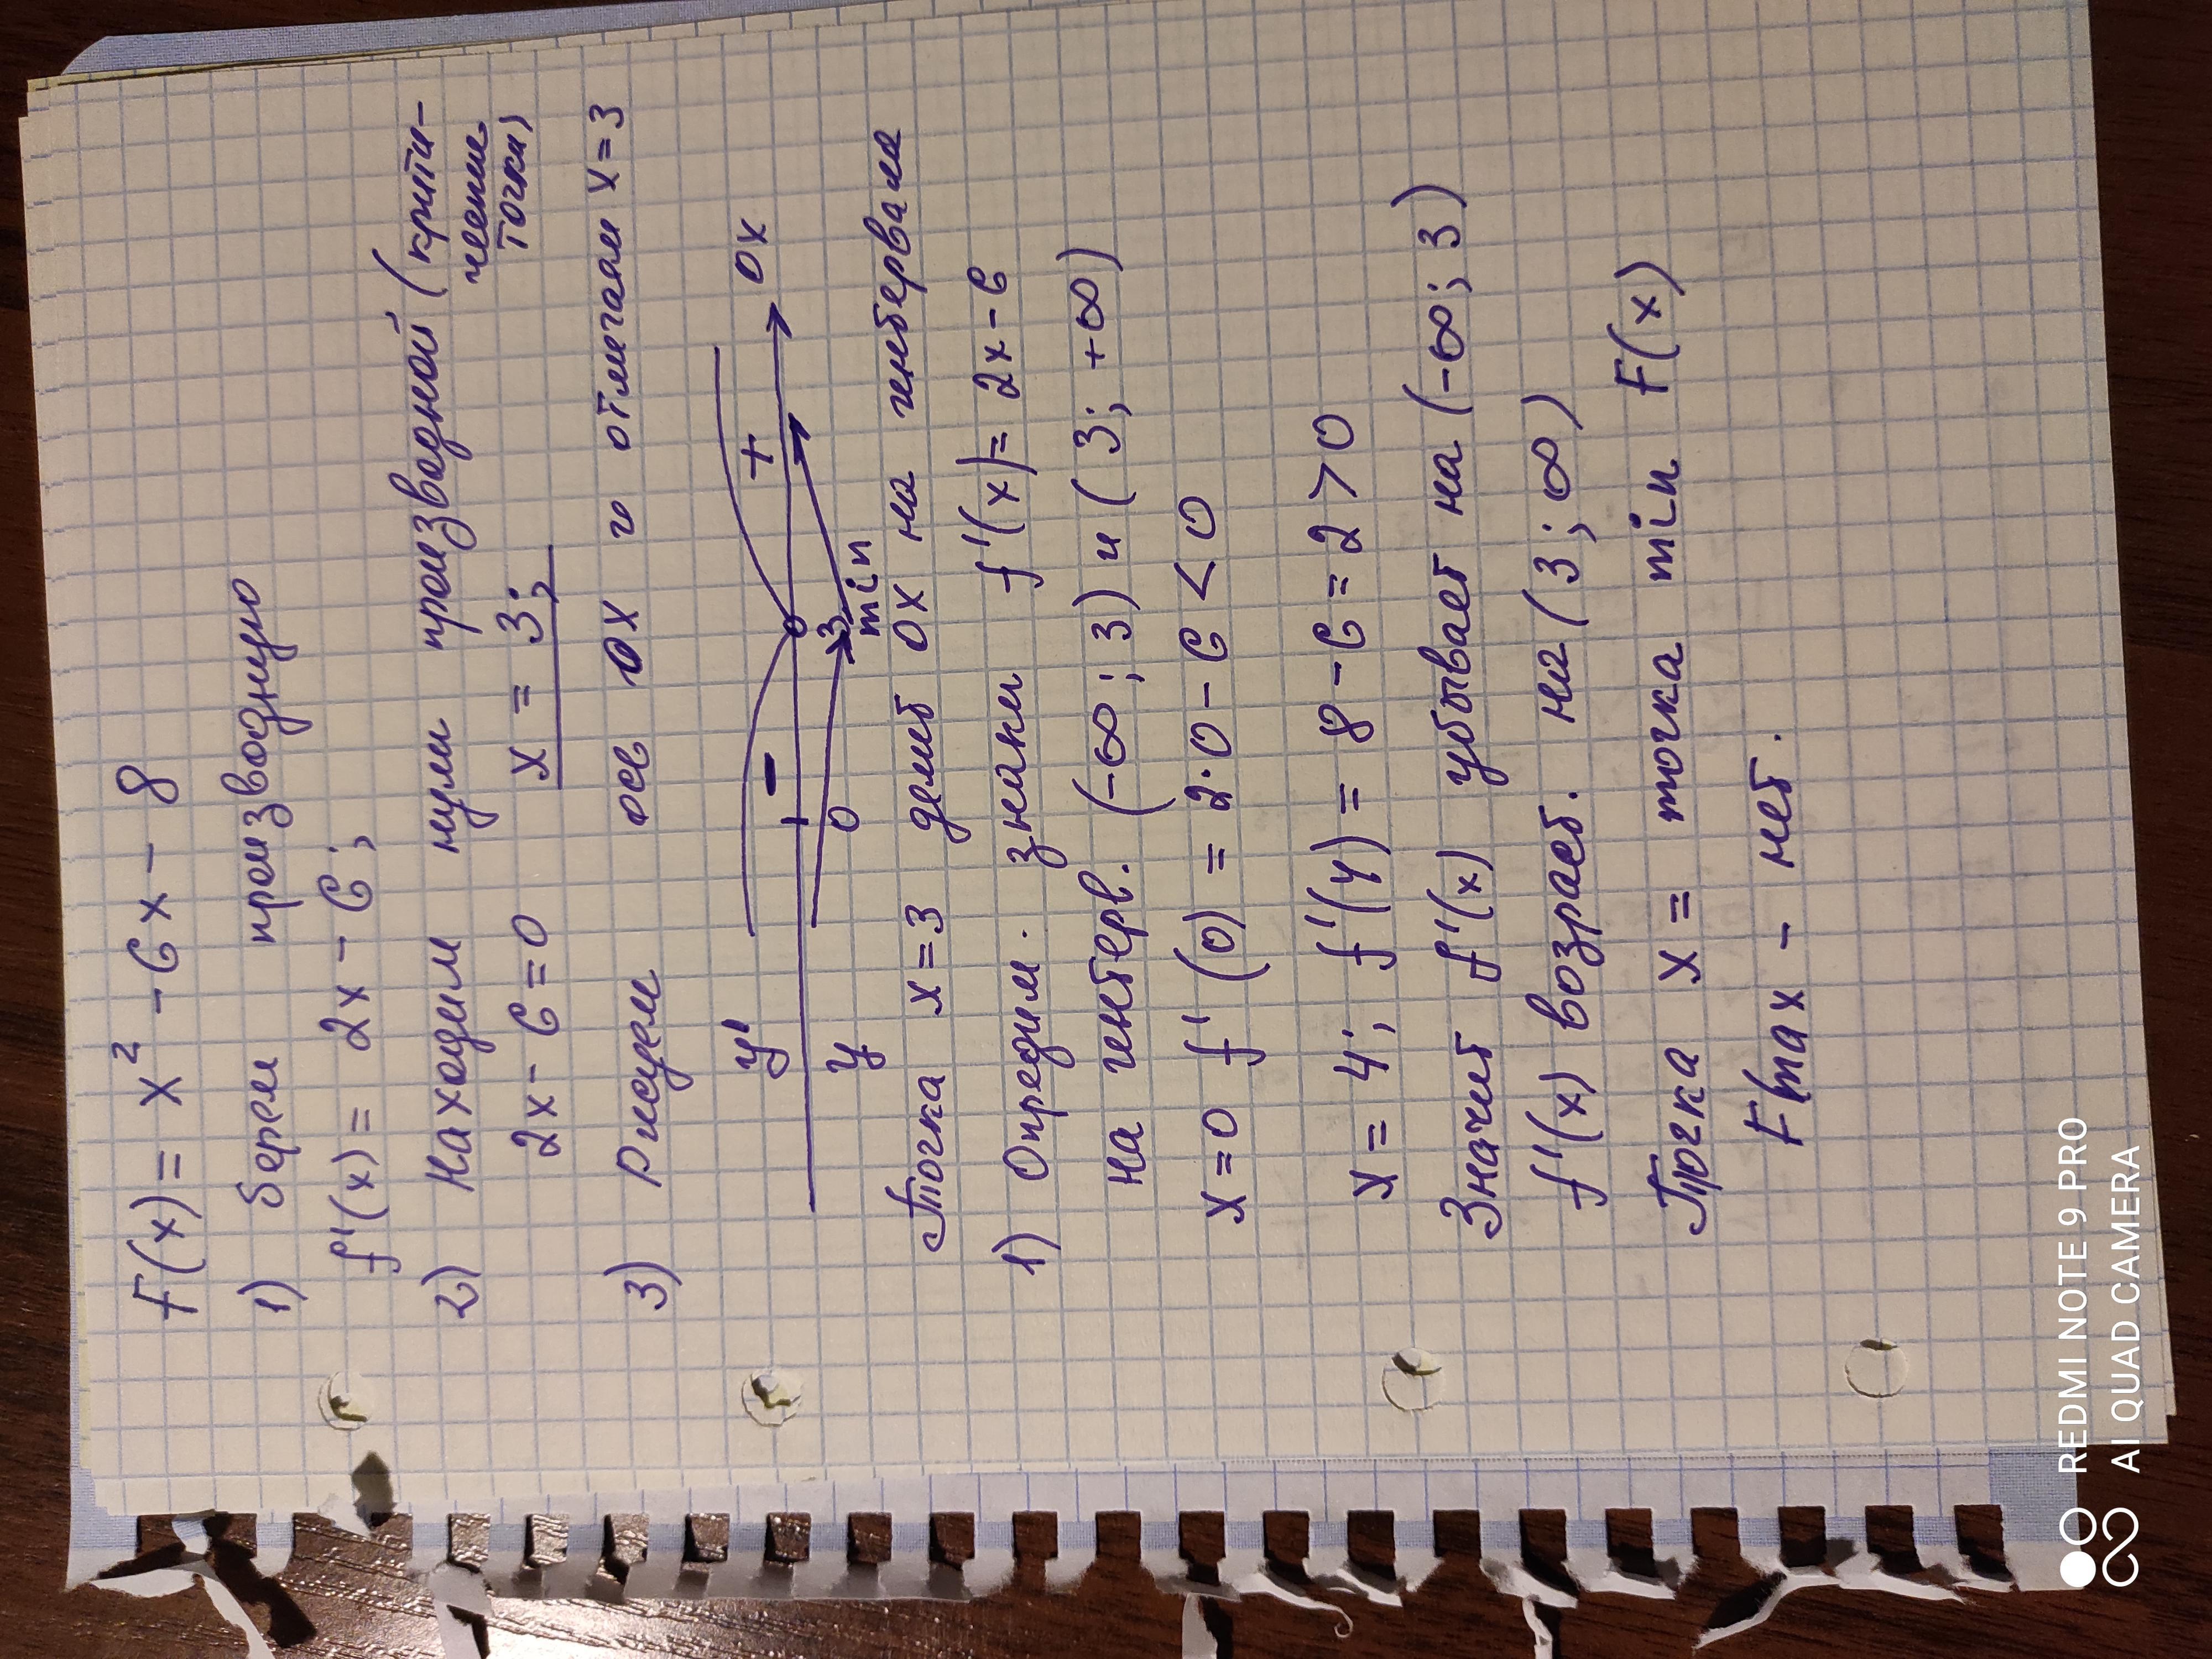 F(x) = x² - 6x - 8
1) берем производную
f'(x) = 2x - 6;
2) Находим нули производной (крити-
ческие
точки)
2x - 6 = 0 x = 3;
3) Рисуем осв OX и отмечаем x = 3
y' - + OX
y 0 3
min
Точка x=3 делит OX на интервала
1) Определ. знаки f'(x) = 2x - 6
на интерв. (-∞; 3) и (3; +∞)
x=0 f'(0) = 2·0 - 6 < 0
x = 4; f'(4) = 8 - 6 = 2 > 0
Значит f'(x) убывает на (-∞; 3)
f'(x) возраст. на (3; ∞)
Точка x = точка min F(x)
Fmax - нет.
REDMI NOTE 9 PRO
AI QUAD CAMERA